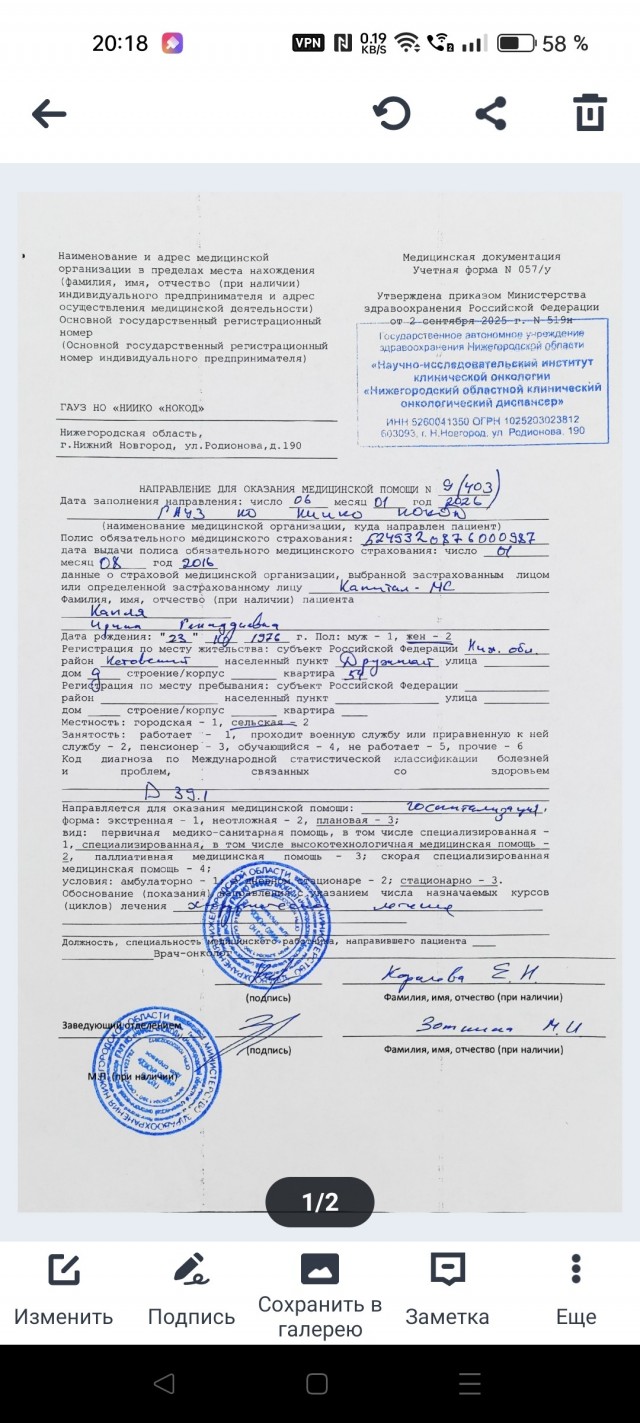 20:18 VPN 0.19 KB/S 58 %
Наименование и адрес медицинской
организации в пределах места нахождения
(фамилия, имя, отчество (при наличии)
индивидуального предпринимателя и адрес
осуществления медицинской деятельности)
Основной государственный регистрационный
номер
(Основной государственный регистрационный
номер индивидуального предпринимателя)
ГАУЗ НО «НИИКО «НОКОД»
Нижегородская область,
г.Нижний Новгород, ул.Родионова,д.190
Медицинская документация
Учетная форма N 057/у
Утверждена приказом Министерства
здравоохранения Российской Федерации
от 2 сентября 2025 г. N 519н
Государственное автономное учреждение
здравоохранения Нижегородской области
«Научно-исследовательский институт
клинической онкологии
«Нижегородский областной клинический
онкологический диспансер»
ИНН 5260041350 ОГРН 1025203023812
603093, г. Н.Новгород, ул. Родионова, 190
НАПРАВЛЕНИЕ ДЛЯ ОКАЗАНИЯ МЕДИЦИНСКОЙ ПОМОЩИ N 9/403)
Дата заполнения направления: число 06 месяц 01 год 2026
ГАУЗ НО НИИКО НОКОД
(наименование медицинской организации, куда направлен пациент)
Полис обязательного медицинского страхования: 5245320876000987
дата выдачи полиса обязательного медицинского страхования: число 01
месяц 08 год 2016
данные о страховой медицинской организации, выбранной застрахованным лицом
или определенной застрахованному лицу Капитал-МС
Фамилия, имя, отчество (при наличии) пациента
Капля
Ирина Геннадиевна
Дата рождения: "23" 10 1976 г. Пол: муж - 1, жен - 2
Регистрация по месту жительства: субъект Российской Федерации Ниж. обл.
район Кстовский населенный пункт Дружный улица
дом 9 строение/корпус квартира 54
Регистрация по месту пребывания: субъект Российской Федерации
район населенный пункт улица
дом строение/корпус квартира
Местность: городская - 1, сельская - 2
Занятость: работает - 1, проходит военную службу или приравненную к ней
службу - 2, пенсионер - 3, обучающийся - 4, не работает - 5, прочие - 6
Код диагноза по Международной статистической классификации болезней
и проблем, связанных со здоровьем
D 39.1
Направляется для оказания медицинской помощи: госпитализация,
форма: экстренная - 1, неотложная - 2, плановая - 3;
вид: первичная медико-санитарная помощь, в том числе специализированная -
1, специализированная, в том числе высокотехнологичная медицинская помощь -
2, паллиативная медицинская помощь - 3; скорая специализированная
медицинская помощь - 4;
условия: амбулаторно - 1, в дневном стационаре - 2; стационарно - 3.
Обоснование (показания) направления с указанием числа назначаемых курсов
(циклов) лечения лечение
Должность, специальность медицинского работника, направившего пациента
Врач-онколог
Е. Н.
(подпись) Фамилия, имя, отчество (при наличии)
Заведующий отделением М. И
(подпись) Фамилия, имя, отчество (при наличии)
М.П. (при наличии)
1/2
Изменить Подпись Сохранить в галерею Заметка Еще